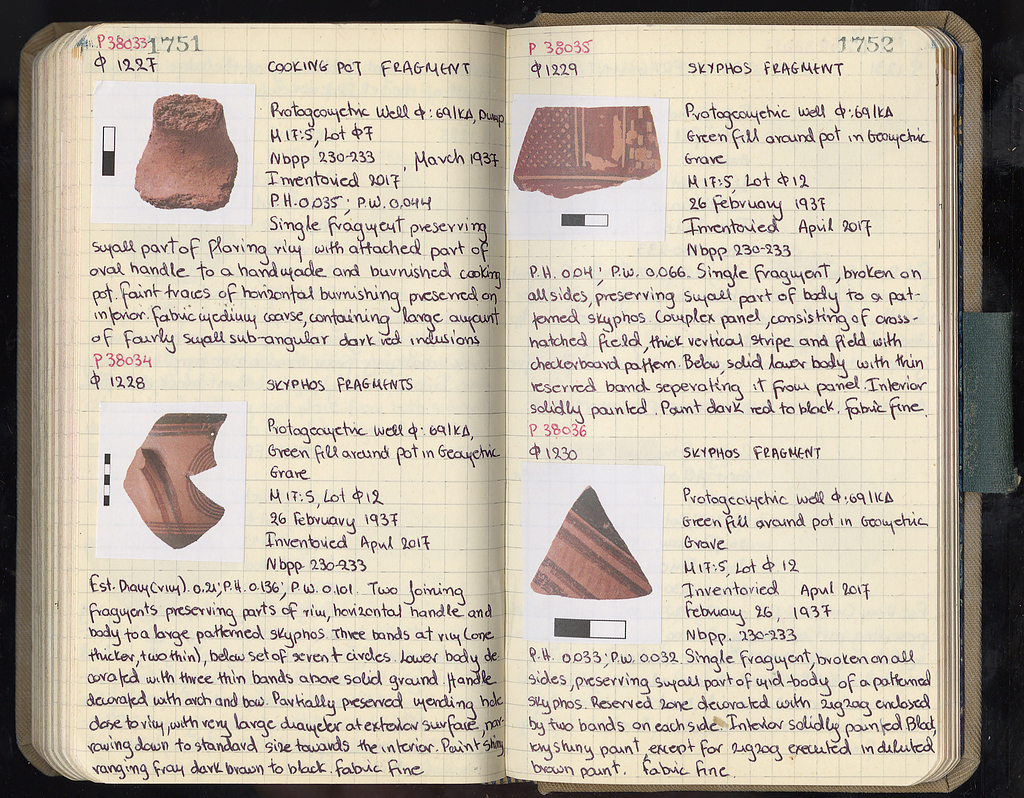 P 38033 1751
Φ 1227 COOKING POT FRAGMENT
Protogeometric Well Φ:69/KΔ, Dump
M 17:5, Lot Φ7
Nbpp 230-233 , March 1937
Inventoried 2017
P.H. 0.035; P.W. 0.044
Single fragment preserving
small part of flaring rim with attached part of
oval handle to a handmade and burnished cooking
pot. Faint traces of horizontal burnishing preserved on
interior. Fabric medium coarse, containing large amount
of fairly small sub-angular dark red inclusions
P 38034
Φ 1228 SKYPHOS FRAGMENTS
Protogeometric Well Φ:69/KΔ,
Green fill around pot in Geometric
Grave
M 17:5, Lot Φ12
26 February 1937
Inventoried April 2017
Nbpp 230-233
Est. Diam(rim). 0.21; P.H. 0.136; P.W. 0.101. Two joining
fragments preserving parts of rim, horizontal handle and
body to a large patterned skyphos. Three bands at rim (one
thicker, two thin), below set of seven t circles. Lower body de-
corated with three thin bands above solid ground. Handle
decorated with arch and bow. Partially preserved mending hole
close to rim, with very large diameter at exterior surface, nar-
rowing down to standard size towards the interior. Paint shiny
ranging fray dark brown to black. Fabric fine
P 38035 1752
Φ 1229 SKYPHOS FRAGMENT
Protogeometric Well Φ:69/KΔ
Green fill around pot in Geometric
Grave
M 17:5, Lot Φ12
26 February 1937
Inventoried April 2017
Nbpp 230-233
P.H. 0.04; P.W. 0.066. Single fragment, broken on
all sides, preserving small part of body to a pat-
terned skyphos. Complex panel, consisting of cross-
hatched field, thick vertical stripe and field with
checkerboard pattern. Below, solid lower body with thin
reserved band seperating it from panel. Interior
solidly painted. Paint dark red to black. Fabric fine.
P 38036
Φ 1230 SKYPHOS FRAGMENT
Protogeometric Well Φ:69/KΔ
Green fill around pot in Geometric
Grave
M 17:5, Lot Φ 12
Inventoried April 2017
February 26, 1937
Nbpp. 230-233
P.H. 0.033; P.W. 0.032. Single fragment, broken on all
sides, preserving small part of mid-body of a patterned
skyphos. Reserved zone decorated with zigzag enclosed
by two bands on each side. Interior solidly painted. Black,
very shiny paint, except for zigzag executed in diluted
brown paint. Fabric fine.